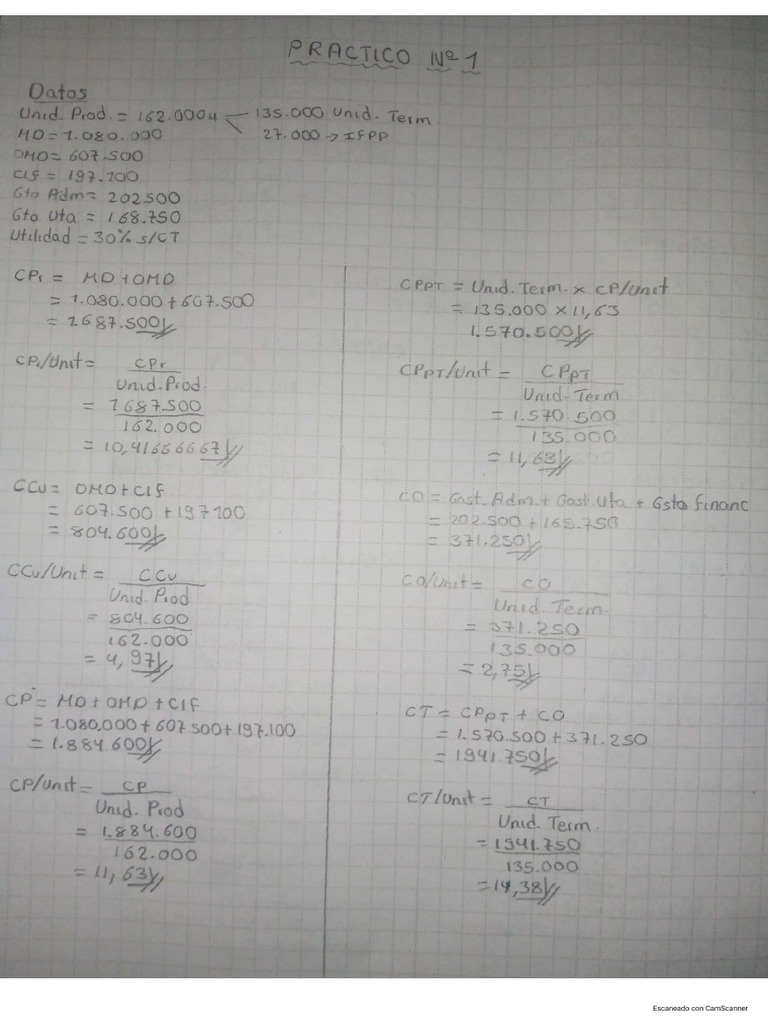 PRACTICO Nº 1
Datos
Unid. Prod. = 162.000u — 135.000 Unid. Term
27.000 → IFPP
MD = 1.080.000
OMD = 607.500
CIF = 197.100
Gto Adm = 202500
Gto Vta = 168.750
Utilidad = 30% s/CT
CPr = MD + OMD
= 1.080.000 + 607.500
= 1687.500
CPr/Unit = CPr
Unid. Prod.
= 1687.500
162.000
= 10,416566667
CCv = OMD + CIF
= 607.500 + 197100
= 804.600
CCv/Unit = CCv
Unid. Prod
= 804.600
162.000
= 4,97
CP = MD + OMD + CIF
= 1.080,000 + 607500 + 197.100
= 1.884.600
CP/Unit = CP
Unid. Prod
= 1.884.600
162.000
= 11,63
CPPT = Unid. Term. x CP/Unit
= 135.000 x 11,63
1.570.500
CPPT/Unit = CPPT
Unid. Term
= 1.570.500
135.000
= 11,63
CO = Gast. Adm. + Gast. Vta + Gsto financ
= 202.500 + 168.750
= 371.250
CO/Unit = CO
Unid Term.
= 371.250
135.000
= 2,75
CT = CPPT + CO
= 1.570.500 + 371.250
= 1941.750
CT/Unit = CT
Unid. Term.
= 1941.750
135.000
= 14,38
Escaneado con CamScanner